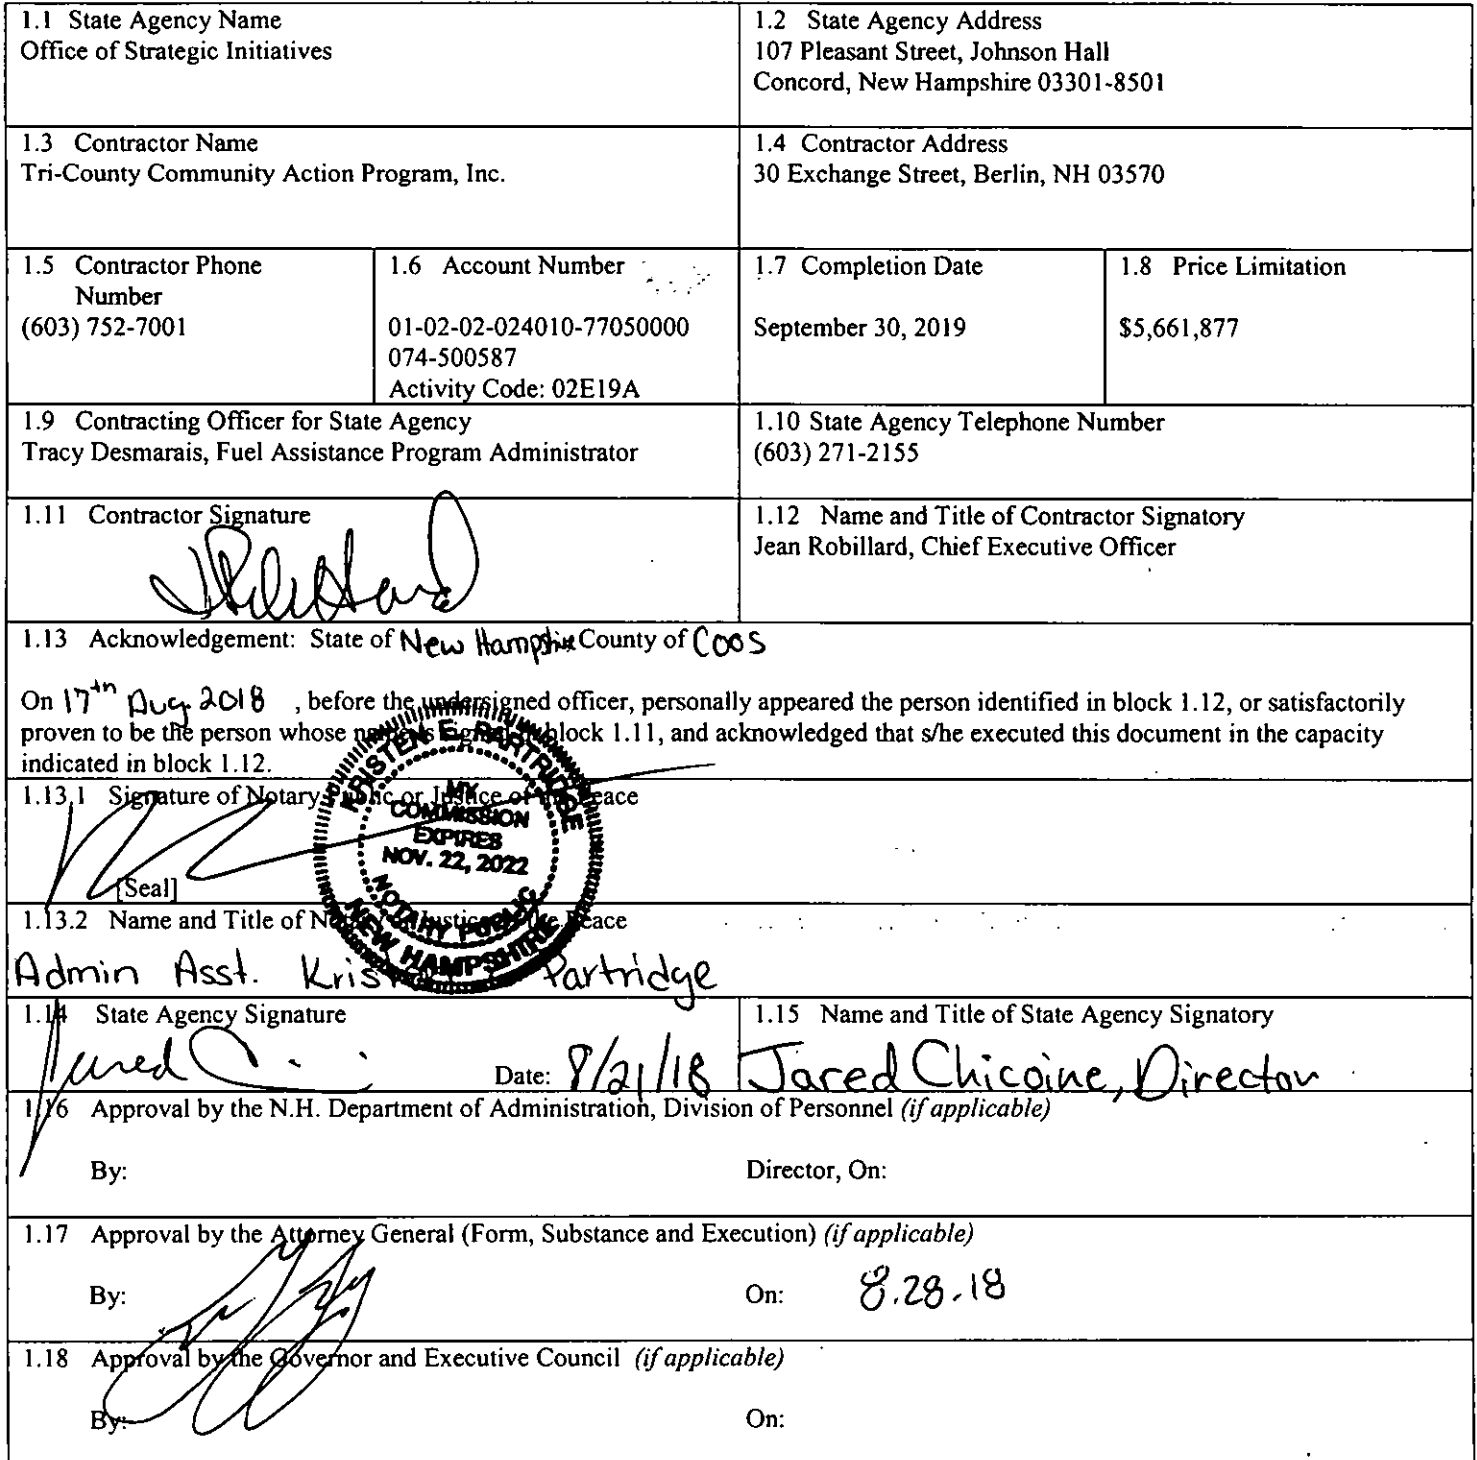 1.1 State Agency Name
Office of Strategic Initiatives
1.2 State Agency Address
107 Pleasant Street, Johnson Hall
Concord, New Hampshire 03301-8501
1.3 Contractor Name
Tri-County Community Action Program, Inc.
1.4 Contractor Address
30 Exchange Street, Berlin, NH 03570
1.5 Contractor Phone
Number
(603) 752-7001
1.6 Account Number
01-02-02-024010-77050000
074-500587
Activity Code: 02E19A
1.7 Completion Date
September 30, 2019
1.8 Price Limitation
$5,661,877
1.9 Contracting Officer for State Agency
Tracy Desmarais, Fuel Assistance Program Administrator
1.10 State Agency Telephone Number
(603) 271-2155
1.11 Contractor Signature
1.12 Name and Title of Contractor Signatory
Jean Robillard, Chief Executive Officer
1.13 Acknowledgement: State of New Hampshire County of Coos
On 17th Aug. 2018 , before the undersigned officer, personally appeared the person identified in block 1.12, or satisfactorily
proven to be the person whose name is signed in block 1.11, and acknowledged that s/he executed this document in the capacity
indicated in block 1.12.
1.13.1 Signature of Notary Public or Justice of the Peace
[Seal]
KRISTEN E. PARTRIDGE
MY
COMMISSION
EXPIRES
NOV. 22, 2022
NOTARY PUBLIC
NEW HAMPSHIRE
1.13.2 Name and Title of Notary or Justice of the Peace
Admin Asst. Kristen E. Partridge
1.14 State Agency Signature
Jared
Date: 8/21/18
1.15 Name and Title of State Agency Signatory
Jared Chicoine, Director
1.16 Approval by the N.H. Department of Administration, Division of Personnel (if applicable)
By:
Director, On:
1.17 Approval by the Attorney General (Form, Substance and Execution) (if applicable)
By:
On: 8.28.18
1.18 Approval by the Governor and Executive Council (if applicable)
By:
On: